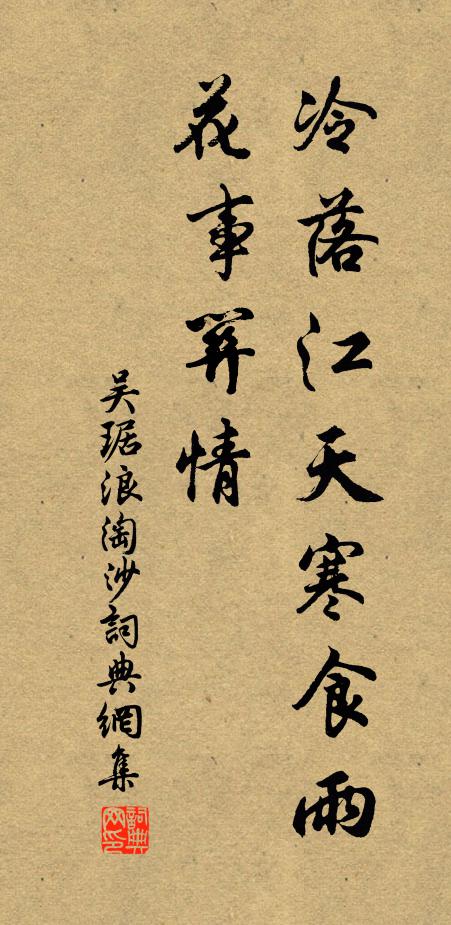 冷落江天寒食雨
花事關情
吳琚浪淘沙詞典網集
詞典网印